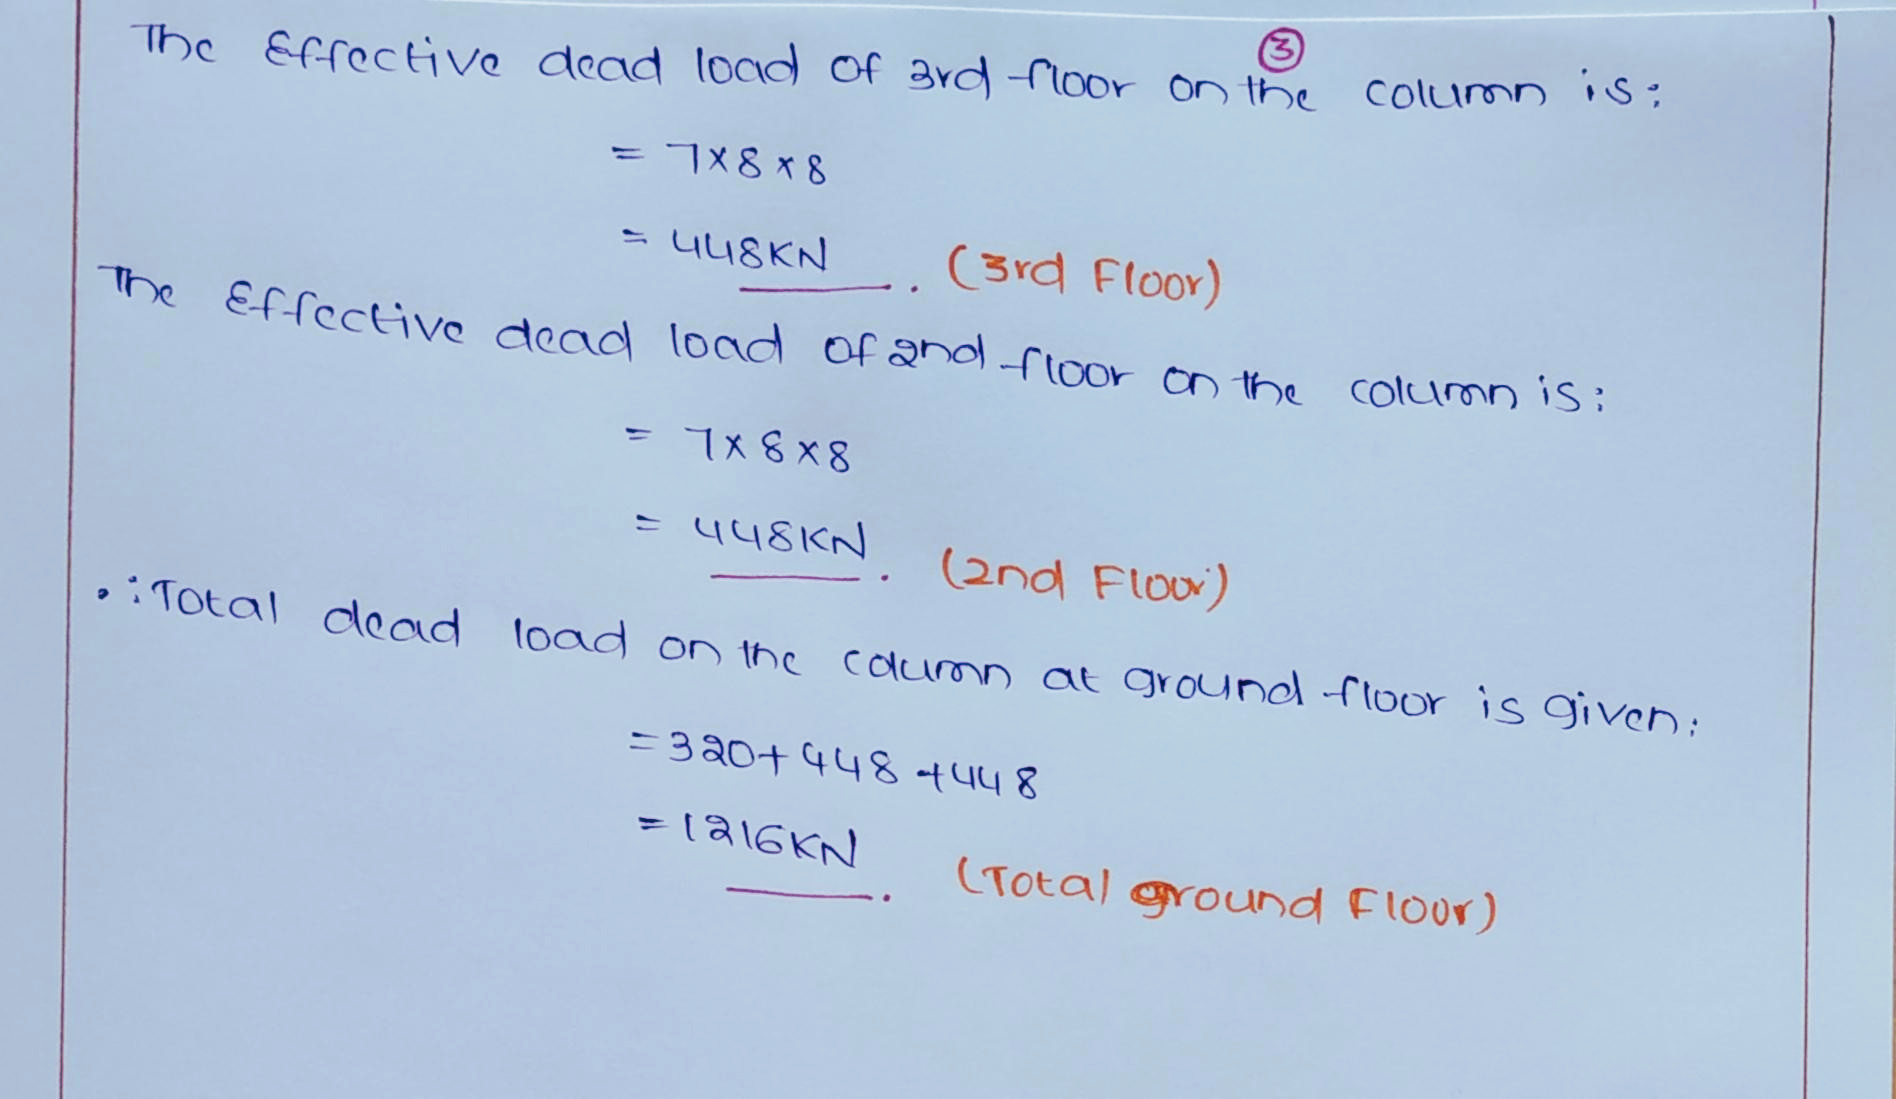 3
The Effective dead load of 3rd floor on the column is:
= 7×8×8
= 448KN. (3rd Floor)
The Effective dead load of 2nd floor on the column is:
= 7×8×8
= 448KN. (2nd Floor)
∴ Total dead load on the column at ground floor is given:
= 320+448+448
= 1216KN. (Total ground Floor)